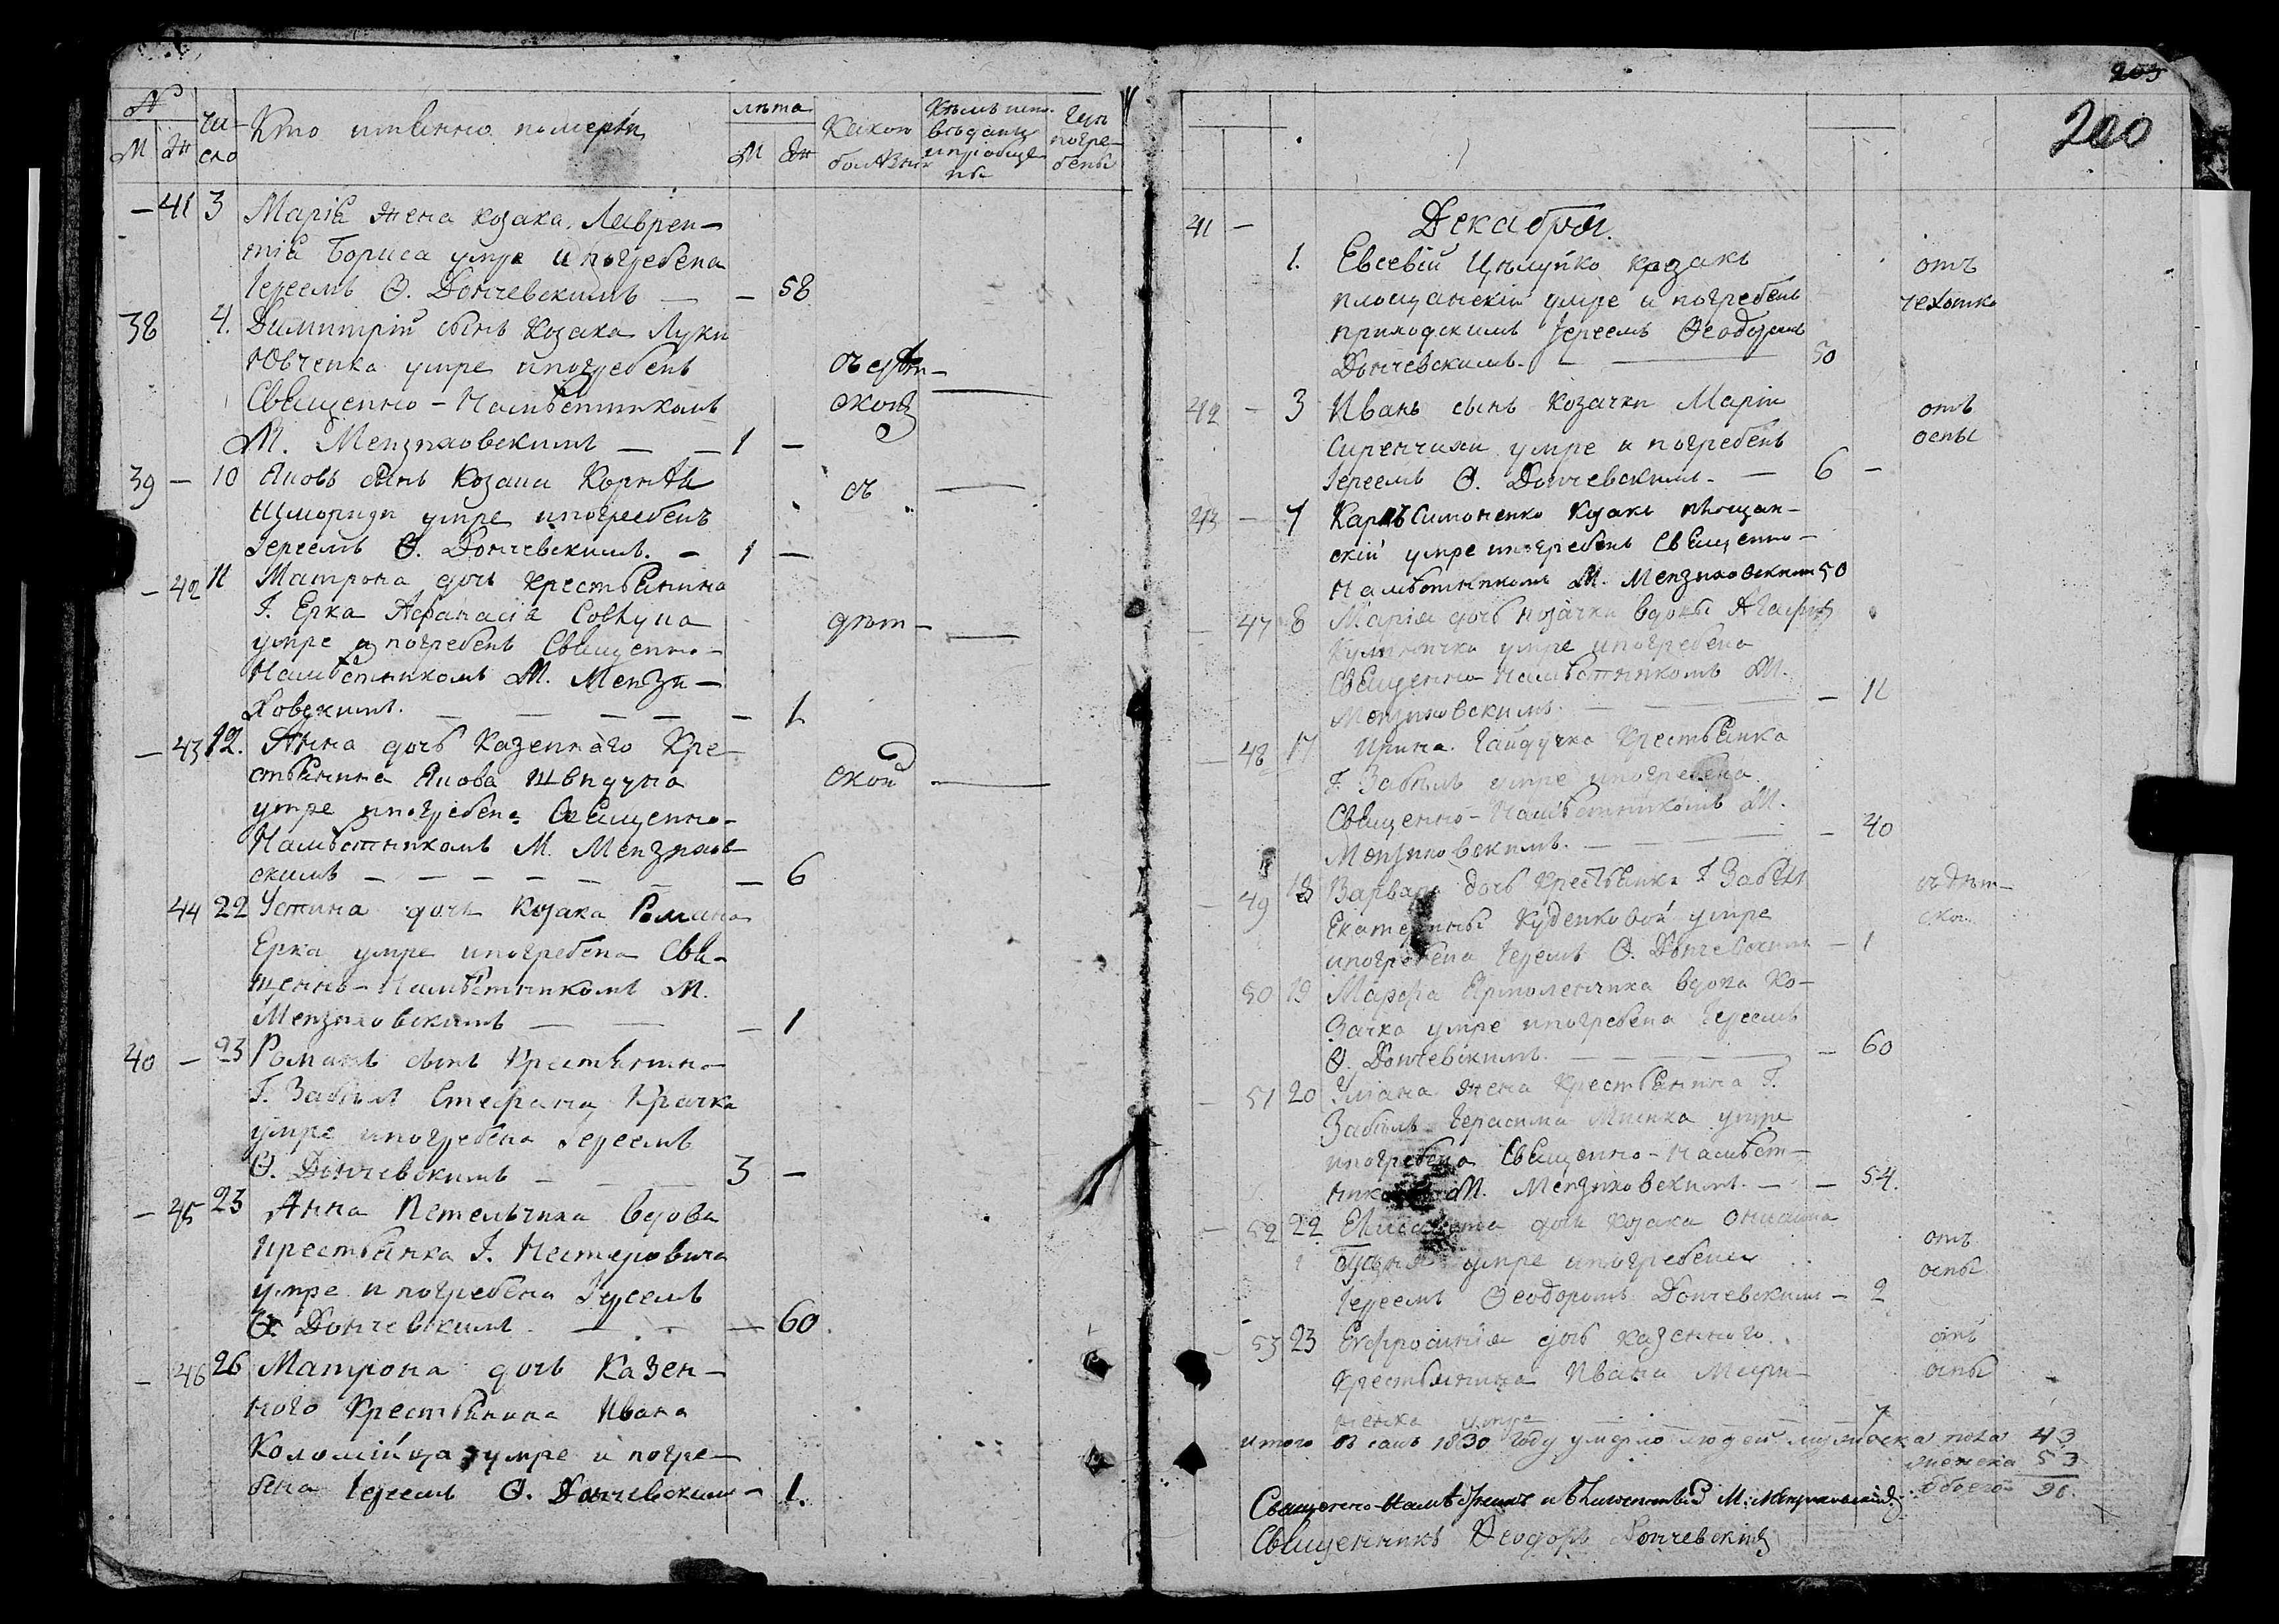 №
М Ж
Чи-
сло
Кто именно померли
лѣта
М Ж
Какою
болѣзнію
Кѣмъ испо-
вѣданы
и пріобще-
ны
Гдѣ
погре-
бены
— 41 3 Марія жена козака Лаврен-
тія Бориса умре и погребена
Іереемъ Ѳ. Дончевскимъ — — 58
38 4. Димитрій сынъ козака Луки
Ювченка умре и погребенъ
Священно-Намѣстникомъ
М. Мензиховскимъ — — 1 —
39 — 10 Яковъ сынъ козака Корнѣя
умре и погребенъ съ —
Іереемъ Ѳ. Дончевскимъ. — 1 —
— 42 11 Матрона дочь крестьянина
Г. Ерка Афанасія Совкуна
умре и погребенъ Священно- дѣт—
Намѣстникомъ М. Мензи-
ховскимъ. — — — — 1
— 43 12. Анна дочь казеннаго кре-
стьянина Якова Швидуна
умре и погребена Священно- ской —
Намѣстникомъ М. Мензихов-
скимъ — — — — — — 6
44 22 Устина дочь козака Романа
Ерка умре и погребена Свя-
щенно-Намѣстникомъ М.
Мензиховскимъ — — — 1
40 — 23 Романъ сынъ крестьянина
Г. Забѣлъ Стефана Крачка
умре и погребена Іереемъ
Ѳ. Дончевскимъ — — — 3 —
— 45 23 Анна Петельчиха вдова
крестьянка Г. Нестеровича
умре и погребена Іереемъ
Ѳ. Дончевскимъ. — — — 60.
— 46 26 Матрона дочь казен-
ного крестьянина Ивана
Коломійца умре и погре-
бена Іереемъ Ѳ. Дончевскимъ — 1.
203
200
41 — Декабря.
1. Евсевій Цѣлуйко козакъ отъ
площанскій умре и погребенъ чехотки
приходскимъ Іереемъ Ѳеодоромъ
Дончевскимъ. — — 50
42 — 3 Иванъ сынъ козачки Маріи отъ
Сиренчихи умре и погребенъ оспы
Іереемъ Ѳ. Дончевскимъ. — 6 —
43 — 7 Карпъ Симоненко козакъ площан-
скій умре и погребенъ Священно-
Намѣстникомъ М. Мензиховским 50
— 47 8 Марія дочь козачки вдовы Агафіи
умре и погребена
Священно Намѣстникомъ М.
Мензиховскимъ. — — 11
— 48 17 Ирина Гайдучка крестьянка
Г. Забѣлъ умре и погребена
Священно-Намѣстникомъ М.
Мензиховскимъ. — — — 40
— 49 18 Варвара дочь крестьянки Г Забѣлъ съ дѣт-
Екатерины Куденковой умре ска
и погребена Іереемъ Ѳ. Дончевскимъ — 1
50 19 Марфа Ярмоленчиха вдова ко-
зачка умре и погребена Іереемъ
Ѳ. Дончевскимъ. — — 60
— 51 20 Уліана жена крестьянина Г.
Забѣлъ Герасима Мыска умре
и погребена Священно-Намѣст-
никомъ М. Мензиховскимъ. — — 54.
— 52 22 Елисавета дочь козака Онисима отъ
умре и погребена оспы
Іереемъ Ѳеодоромъ Дончевскимъ — 2
53 23 Евфросинія дочь казенного отъ
крестьянина Ивана Мири- оспы
ненка умре — — — 7
итого въ семъ 1830 году умерло людей мужеска пола 43
женска 53
обоего 96.
Священно-Намѣстникъ М: Мензиховскій
Священникъ Ѳеодоръ Дончевскій